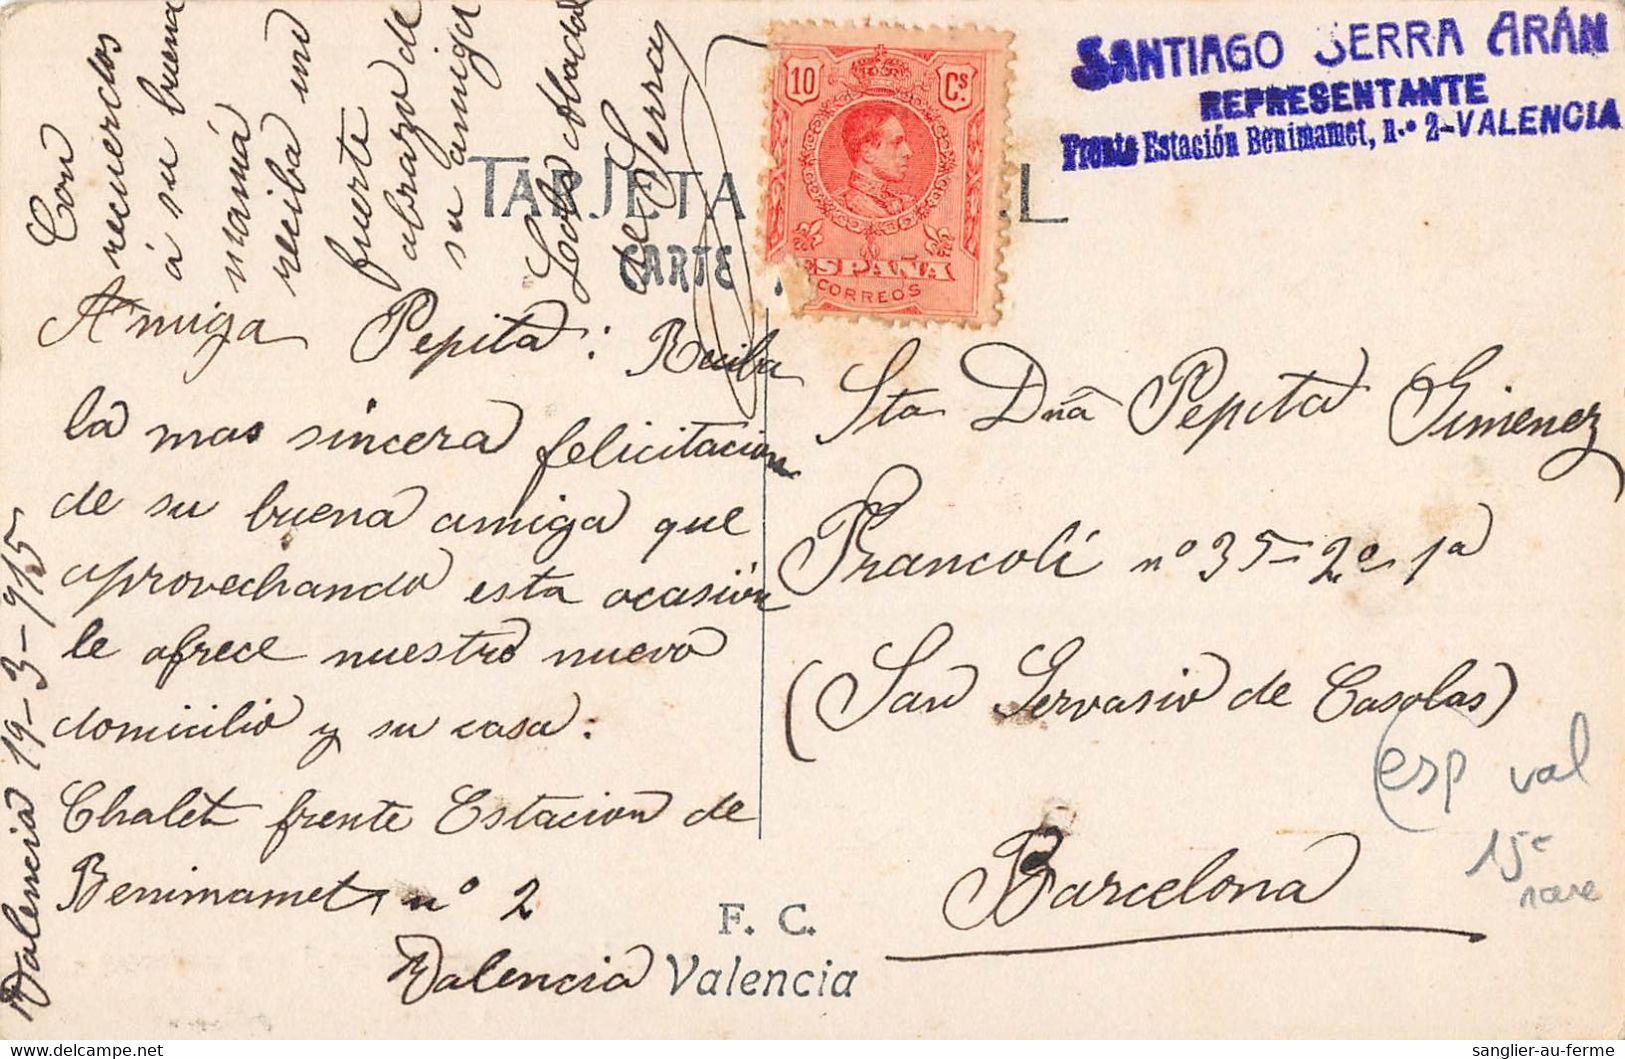 SANTIAGO SERRA ARÁN
REPRESENTANTE
Frente Estación Benimamet, n.º 2-VALENCIA
10 Cs.
ESPAÑA
CORREOS
TARJETA
L
CARTE
Valencia 19-3-915
Amiga Pepita: Reciba
la mas sincera felicitacion
de su buena amiga que
aprovechando esta ocasión
le ofrece nuestro nuevo
domicilio y su casa:
Chalet frente Estacion de
Benimamet nº 2
Valencia
Con
recuerdos
á su buena
mamá
reciba un
fuerte
abrazo de
su amiga
Lola
de Serra
Sta Dña Pepita Gimenez
Francolí nº 35-2º 1ª
(San Gervasio de Casolas)
Barcelona
F. C.
Valencia
esp val
15€
rare
sanglier-au-ferme